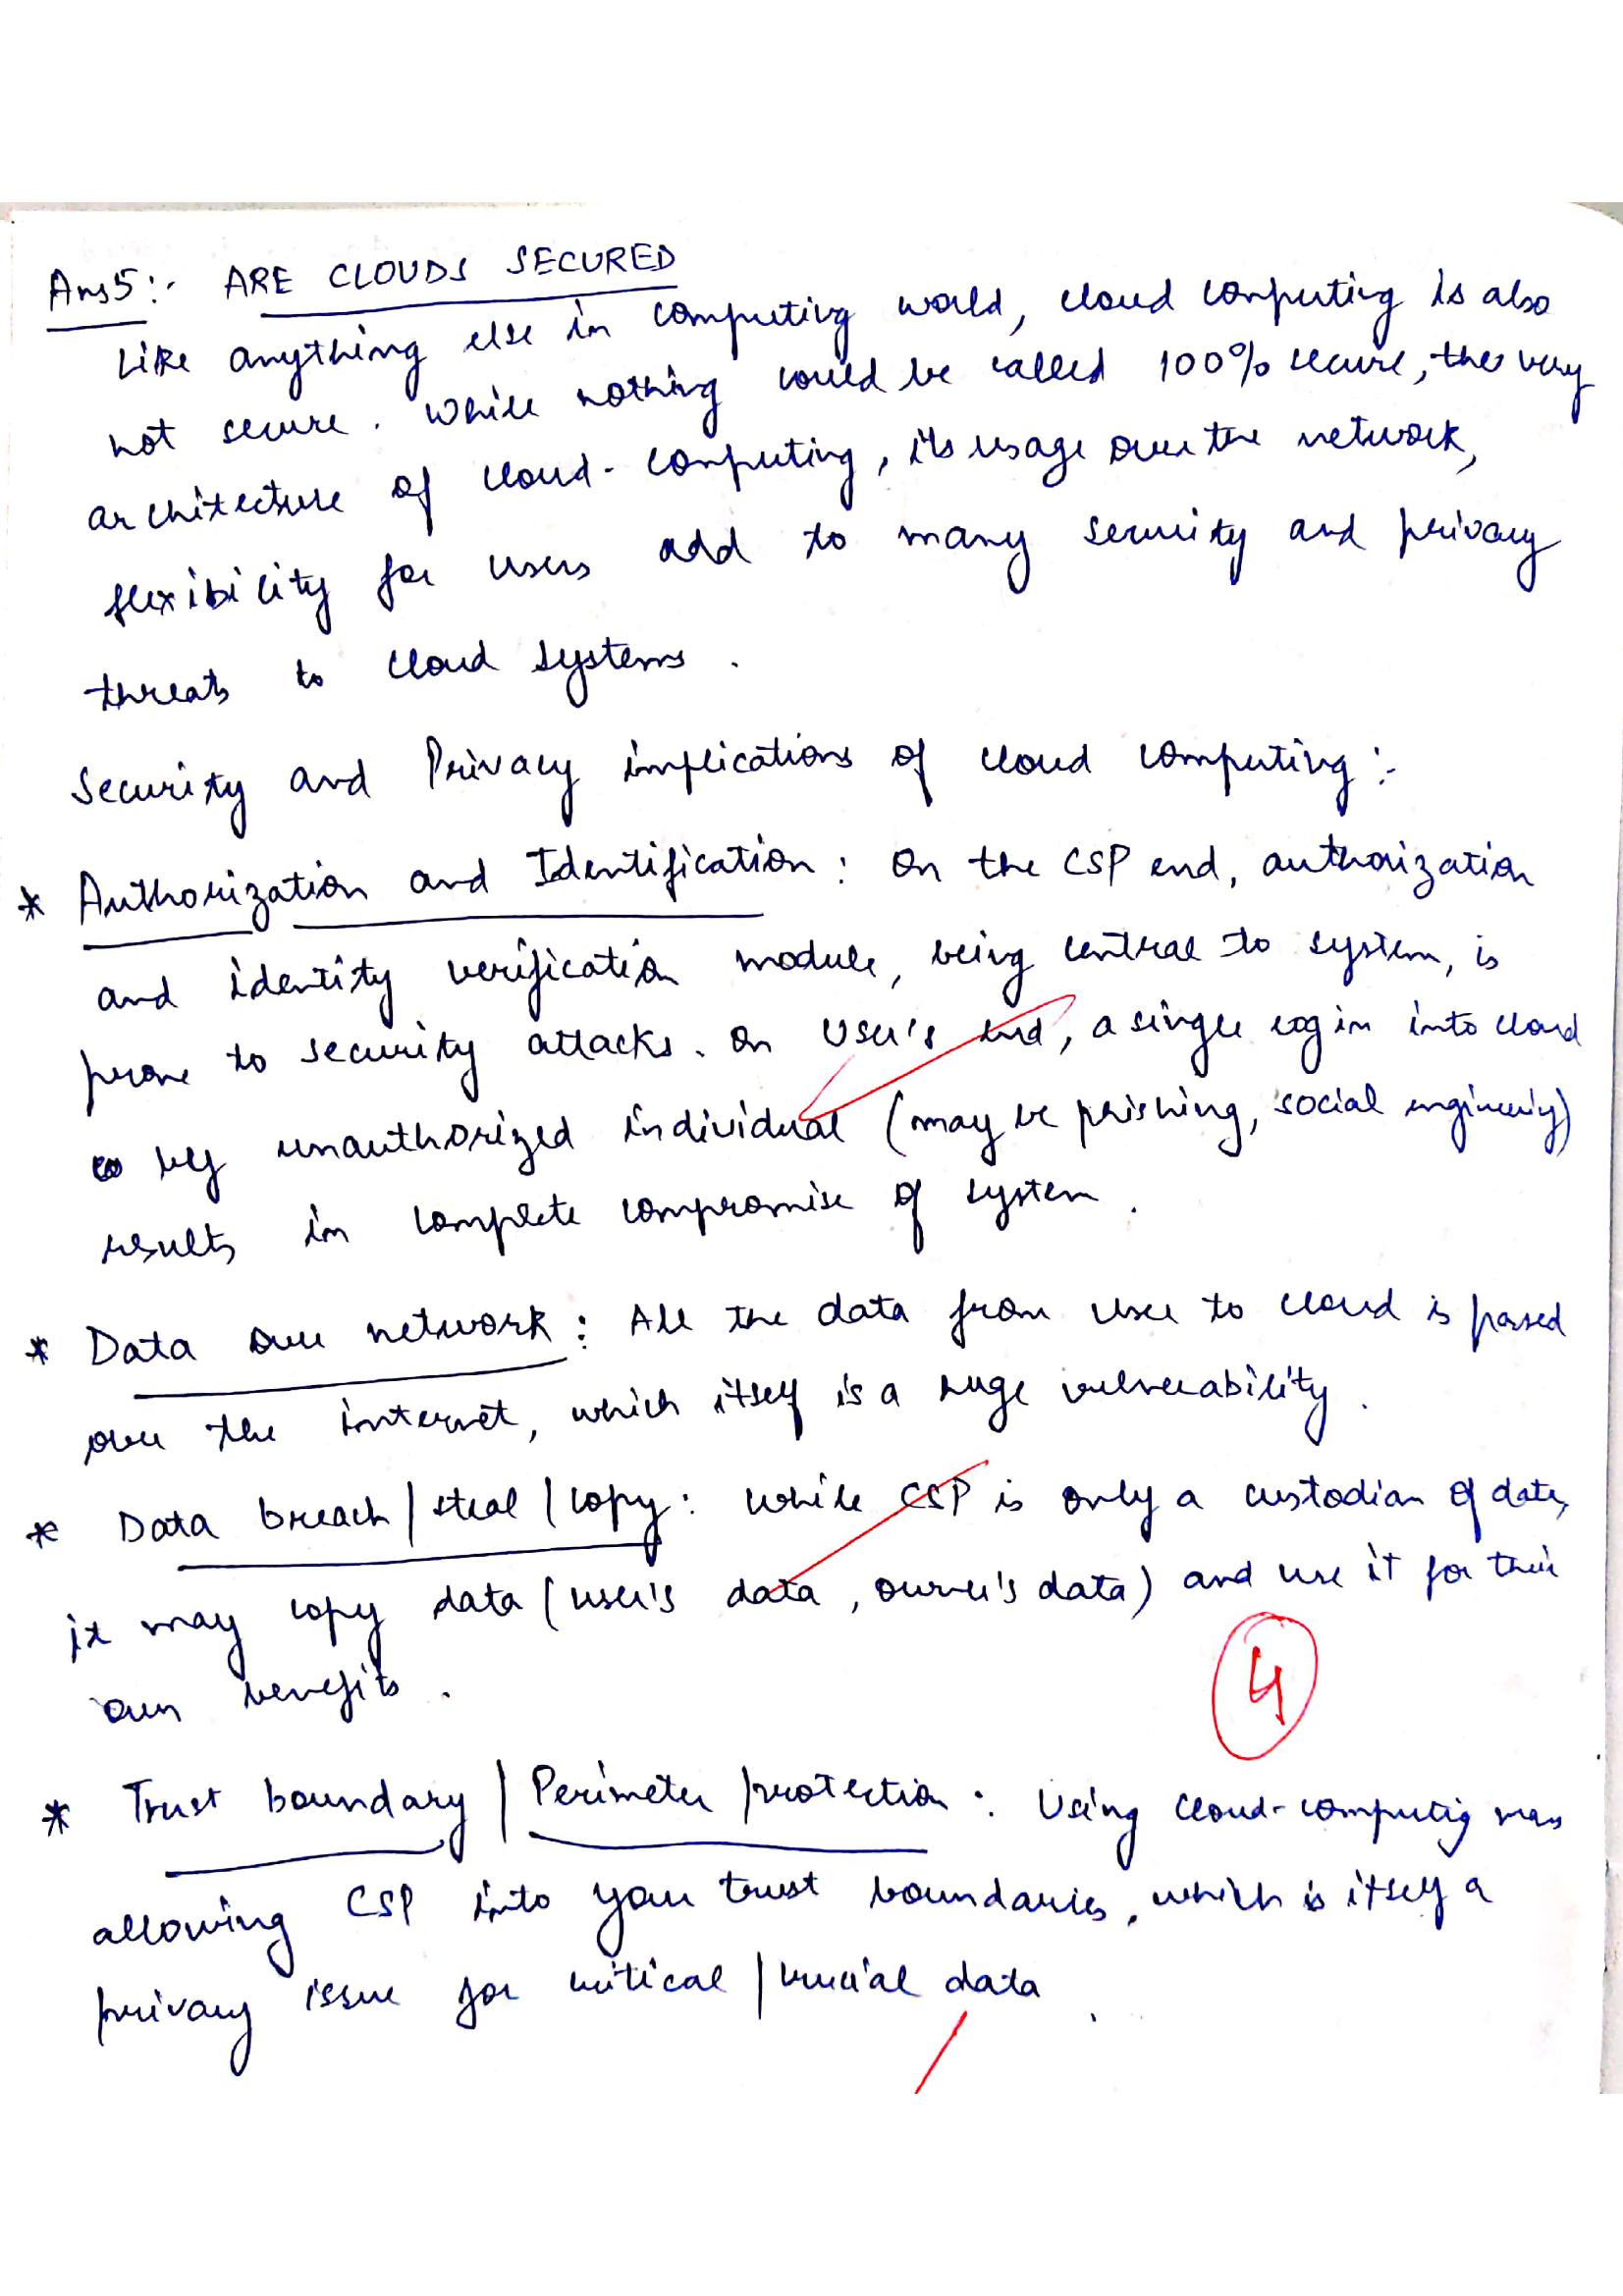 Ans5:- ARE CLOUDS SECURED
Like anything else in computing world, cloud computing is also
not secure. While nothing could be called 100% secure, the very
architecture of cloud-computing, its usage over the network,
flexibility for users add to many security and privacy
threats to cloud systems.
Security and Privacy implications of cloud computing:-
* Authorization and Identification: On the CSP end, authorization
and identity verification module, being central to system, is
prone to security attacks. On User's end, a single log in into cloud
by unauthorized individual (may be phishing, social engineering)
results in complete compromise of system.
* Data over network: All the data from user to cloud is passed
over the internet, which itself is a huge vulnerability.
* Data breach/steal/copy: While CSP is only a custodian of data,
it may copy data (user's data, owner's data) and use it for their
own benefits.
4
* Trust boundary/Perimeter protection: Using cloud-computing means
allowing CSP into your trust boundaries, which is itself a
privacy issue for critical/crucial data.